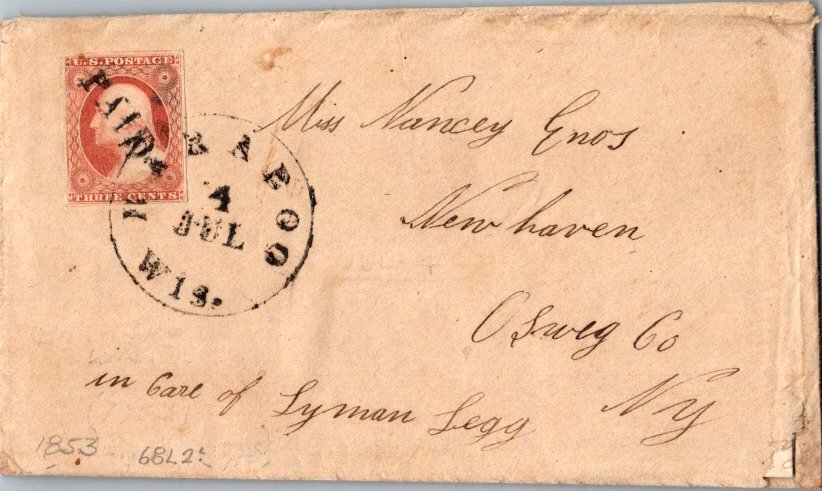 U.S. POSTAGE
PAID
THREE CENTS
BARABOO
4
JUL
WIS.
Miss Nancey Enos
New haven
Osweg Co
NY
in Care of Lyman Legg
1853
68L2